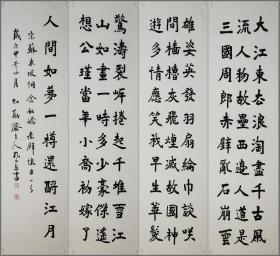 大江東去浪淘盡千古風
流人物故壘西邊人道是
三國周郎赤壁亂石崩雲
雄姿英發羽扇綸巾談笑
間檣櫓灰飛煙滅故國神
遊多情應笑我早生華髮
驚濤裂岸捲起千堆雪江
山如畫一時多少豪傑遙
想公瑾當年小喬初嫁了
人間如夢一樽還酹江月
宋蘇東坡詞念奴嬌赤壁懷古一首
歲次甲午四月齋主人書